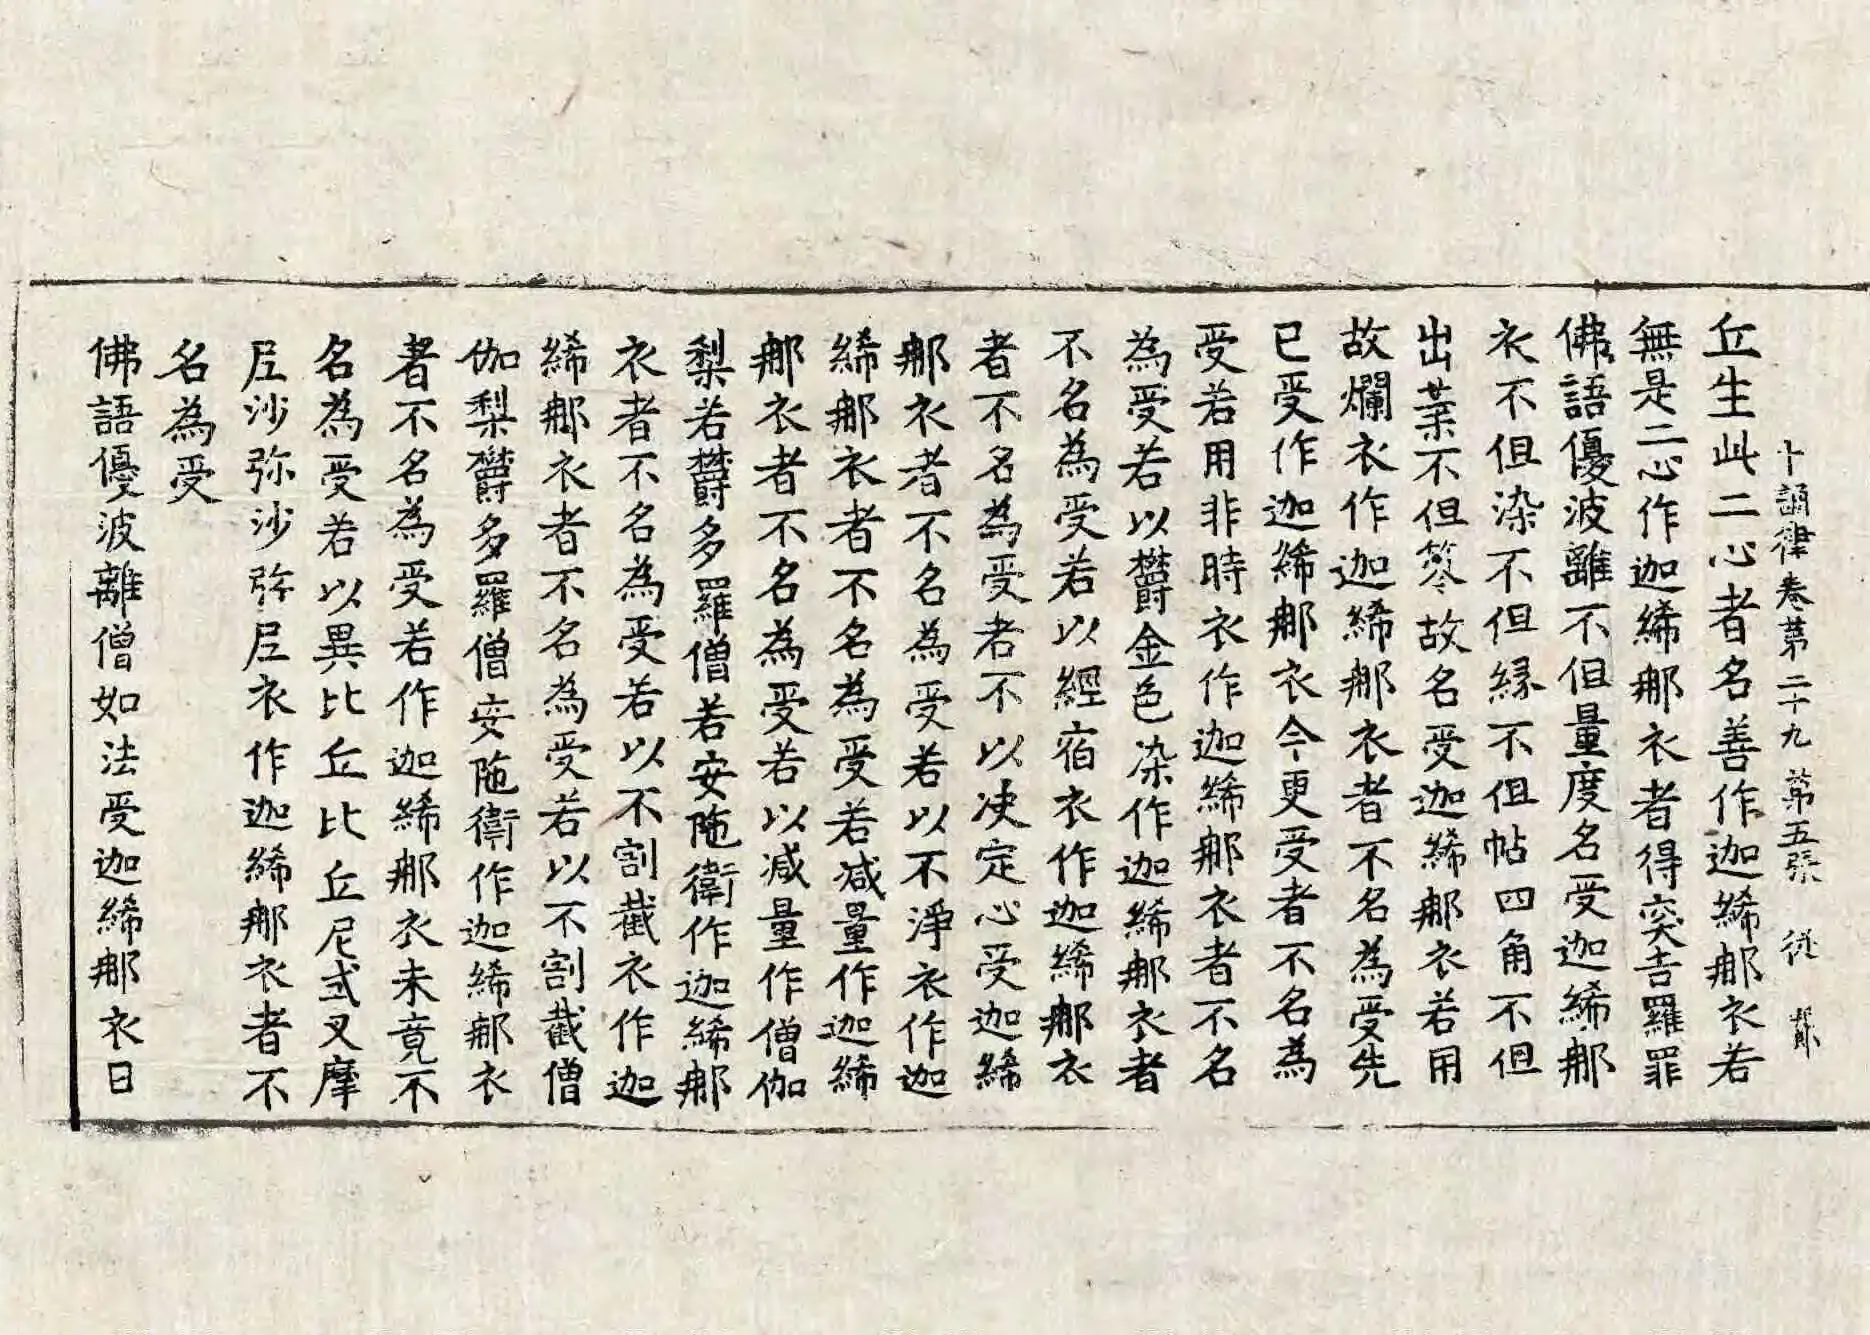 十誦律卷第二十九 第五張 従 貳
丘生此二心者名善作迦絺那衣若
無是二心作迦絺那衣者得突吉羅罪
佛語優波離不但量度名受迦絺那
衣不但染不但縁不但帖四角不但
出葉不但簩故名受迦絺那衣若用
故爛衣作迦絺那衣者不名為受先
已受作迦絺那衣今更受者不名為
受若用非時衣作迦絺那衣者不名
為受若以欝金色染作迦絺那衣者
不名為受若以經宿衣作迦絺那衣
者不名為受者不以决定心受迦絺
那衣者不名為受若以不淨衣作迦
絺那衣者不名為受若减量作迦絺
那衣者不名為受若以减量作僧伽
梨若欝多羅僧若安陁衛作迦絺那
衣者不名為受若以不割截衣作迦
絺那衣者不名為受若以不割截僧
伽梨欝多羅僧安陁衛作迦絺那衣
者不名為受若作迦絺那衣未竟不
名為受若以異比丘比丘尼式叉摩
尼沙弥沙弥尼衣作迦絺那衣者不
名為受
佛語優波離僧如法受迦絺那衣日